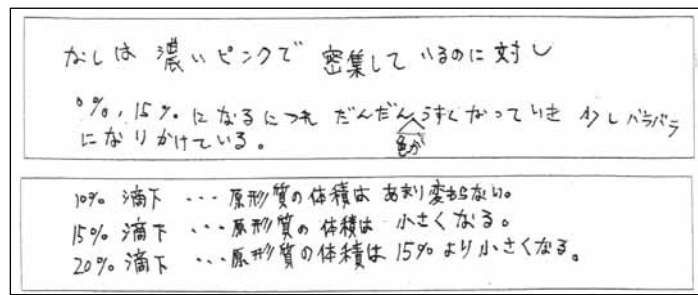 なしは 濃いピンクで 密集して いるのに対し
0%,15% になるにつれ だんだん色がうすくなっていき 少しバラバラ
になりかけている。
10% 滴下 ・・・原形質の体積は あまり変わらない。
15% 滴下 ・・・原形質の体積は 小さくなる。
20% 滴下 ・・・原形質の体積は 15%より小さくなる。